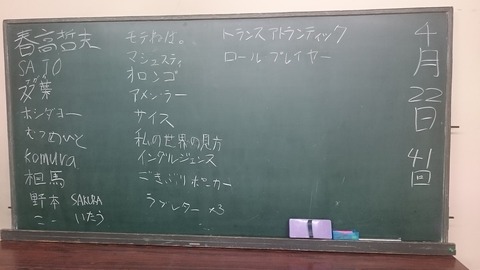 春高哲夫
SAJO
葵葉
ホシダヨー
むつめいと
komura
相馬
野本 SAKURA
こー いたう
モデわせ。
マシュスティ
オロンゴ
アメン・ラー
サイズ
私の世界の見方
インダルジェンス
ごきぶりポーカー
ラブレター ×3
トランスアトランティック
ロールプレイヤー
4月22日 41回